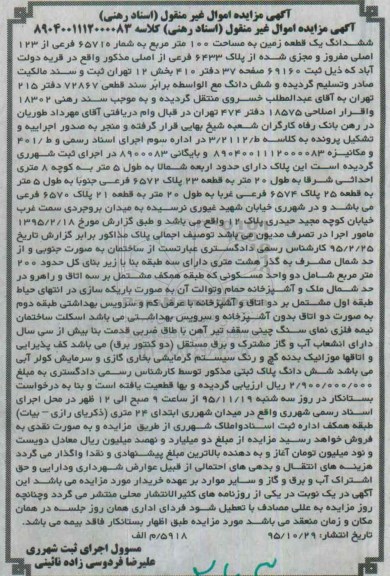 آگهی مزایده اموال غیر منقول (اسناد رهنی)
آگهی مزایده اموال غیر منقول (اسناد رهنی) کلاسه ۸۹۰۴۰۰۱۱۱۲۰۰۰۰۸۳
ششدانگ یک قطعه زمین به مساحت ۱۰۰ متر مربع به شماره ۶۵۷۱۰ فرعی از ۱۲۳
اصلی مفروز و مجزی شده از پلاک ۶۴۳۳ فرعی از اصلی مذکور واقع در قریه دولت
آباد که ذیل ثبت ۶۹۱۶۰ صفحه ۳۷ دفتر ۴۱۰ بخش ۱۲ تهران ثبت و سند مالکیت
صادر وتسلیم گردیده و شش دانگ مع الواسطه برابر سند قطعی ۷۲۸۶۷ دفتر ۲۱۵
تهران به آقای عبدالمطلب خسروی منتقل گردیده و به موجب سند رهنی ۱۸۳۰۲
واقرار اصلاحی ۱۸۵۷۵ دفتر ۴۷۴ تهران در قبال وام دریافتی آقای مهرداد طوریان
در رهن بانک رفاه کارگران شعبه شیخ بهایی قرار گرفته و منجر به صدور اجراییه و
تشکیل پرونده به کلاسه ط/۳/۲۱۱۲ در اداره سوم اجرای اسناد رسمی و ط/۴۰۱
و مکانیزه ۸۹۰۴۰۰۱۱۱۲۰۰۰۰۸۳ و بایگانی ۸۹۰۰۰۸۳ در اجرای ثبت شهرری
گردیده است این پلاک دارای حدود اربعه شمالا به طول ۵ متر به کوچه ۸ متری
احداثی شرقا به طول ۲۰ متر به قطعه ۲۳ پلاک ۶۵۷۲ فرعی جنوبا به طول ۵ متر
به قطعه ۲۵ پلاک ۶۵۷۴ فرعی غربا به طول ۲۰ متر به قطعه ۲۱ پلاک ۶۵۷۰ فرعی
می باشد و در شهرری خیابان شهید غیوری نرسیده به میدان بروجردی سمت غرب
خیابان کوچه مجید حیدری پلاک ۱۲ واقع می باشد و طبق گزارش مورخ ۱۳۹۵/۲/۱۸
مامور اجرا در تصرف مدیون می باشد توصیف اجمالی پلاک مذکور برابر گزارش تاریخ
۹۵/۲/۲۵ کارشناس رسمی دادگستری عبارتست از ساختمان به صورت جنوبی و از
حد شمال مشرف به گذر هشت متری دارای سه طبقه بنا با زیر بنای کل حدود ۲۰۰
متر مربع شامل دو واحد مسکونی که طبقه همکف مشتمل بر سه اتاق و راهرو در
حد شمال ملک و آشپزخانه حمام وتوالت آن به صورت باریکه سازی در انتهای حیاط
طبقه اول مشتمل بر دو اتاق و آشپزخانه با عرض کم و سرویس بهداشتی طبقه دوم
به صورت دو اتاق بدون آشپزخانه و سرویس بهداشتی می باشد اسکلت ساختمان
نیمه فلزی نمای سنگ چینی سقف تیر آهن با طاق ضربی قدمت بنا بیش از سی سال
دارای انشعاب آب و گاز مشترک و برق مستقل (دو کنتور برق) می باشد کف پذیرایی
و اتاقها موزائیک بدنه گچ و رنگ سیستم گرمایشی بخاری گازی و سرمایش کولر آبی
می باشد شش دانگ پلاک ثبتی مذکور توسط کارشناس رسمی دادگستری به مبلغ
۲/۹۰۰/۰۰۰/۰۰۰ ریال ارزیابی گردیده و بها قطعیت یافته است و بنا به درخواست
بستانکار در روز سه شنبه ۹۵/۱۱/۱۹ از ساعت ۹ صبح الی ۱۲ ظهر در محل اجرای
اسناد رسمی شهرری واقع در میدان شهرری ابتدای ۲۴ متری (ذکریای رازی – بیات)
طبقه همکف اداره ثبت اسنادواملاک شهرری از طریق مزایده و به صورت نقدی به
فروش خواهد رسید مزایده از مبلغ دو میلیارد و نهصد میلیون ریال معادل دویست
و نود میلیون تومان آغاز و به دهنده بالاترین مبلغ پیشنهادی و نقدا واگذار می گردد
هزینه های انتقال و بدهی های احتمالی از قبیل عوارض شهرداری ودارایی و حق
اشتراک آب و برق و گاز و سایر موارد بر عهده خریدار مورد مزایده می باشد این
آگهی در یک نوبت در یکی از روزنامه های کثیرالانتشار محلی منتشر می گردد وچنانچه
روز مزایده به عللی مصادف با تعطیل شود فردای اداری همان روز جلسه در همان
مکان و زمان منعقد می باشد مورد مزایده طبق اظهار بستانکار فاقد بیمه می باشد.
تاریخ انتشار: ۹۵/۱۰/۲۹ ۵۹۱۸/م الف
مسوول اجرای ثبت شهرری
علیرضا فردوسی زاده نائینی